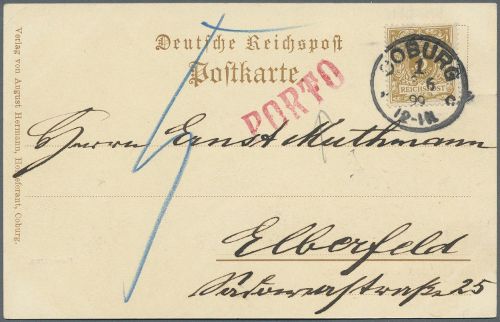 Deutsche Reichspost
Postkarte
PORTO
COBURG
1
6
99
12-1N.
REICHSPOST
5
Herrn Ernst Muthmann
Elberfeld
Sadowastraße 25
Verlag von August Hermann, Hoflieferant, Coburg.